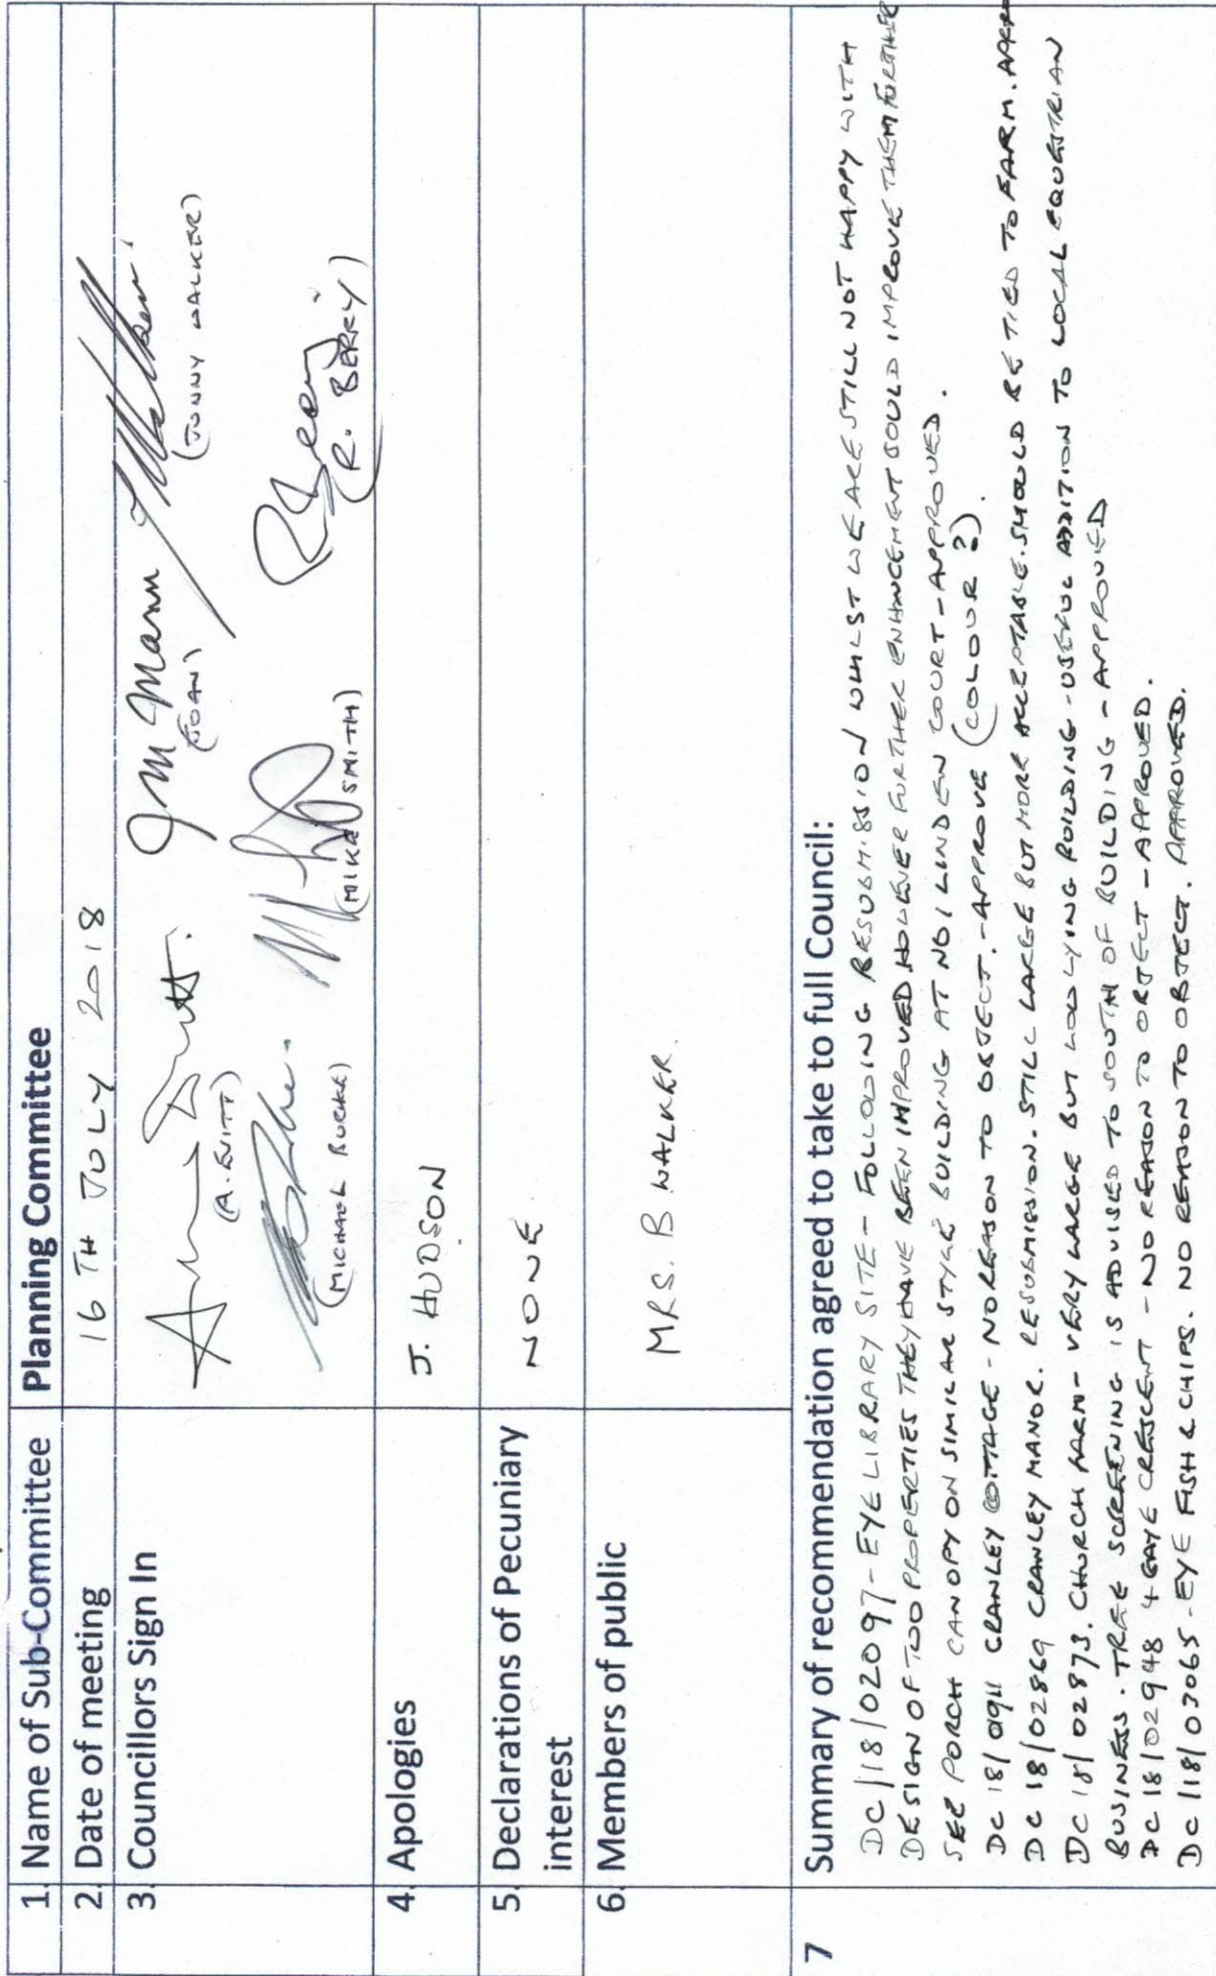 1. Name of Sub-Committee Planning Committee
2. Date of meeting 16 TH JULY 2018
3. Councillors Sign In
J M Mann
(A. EVITT) (JOAN) (JONNY WALKER)
(MICHAEL BURKE) (MIKE SMITH) (R. BERRY)
4. Apologies J. HUDSON
5. Declarations of Pecuniary interest NONE
6. Members of public MRS. B WALKER.
7 Summary of recommendation agreed to take to full Council:
DC/18/02097 - EYE LIBRARY SITE - FOLLOWING RESUBMISSION WHILST WE ARE STILL NOT HAPPY WITH
DESIGN OF TWO PROPERTIES THEY HAVE BEEN IMPROVED HOWEVER FURTHER ENHANCEMENT COULD IMPROVE THEM FURTHER
SEE PORCH CANOPY ON SIMILAR STYLE BUILDING AT NO 1 LINDEN COURT - APPROVED.
DC 18/ CRANLEY COTTAGE - NO REASON TO OBJECT. - APPROVE (COLOUR ?).
DC 18/02869 CRANLEY MANOR. RESUBMISSION. STILL LARGE BUT MORE ACCEPTABLE. SHOULD BE TIED TO FARM.
DC 18/02873. CHURCH FARM - VERY LARGE BUT LOW LYING BUILDING - USEFUL ADDITION TO LOCAL EQUESTRIAN
BUSINESS. TREE SCREENING IS ADVISED TO SOUTH OF BUILDING - APPROVED
DC 18/02948 4 GAYE CRESCENT - NO REASON TO OBJECT - APPROVED.
DC/18/03065 - EYE FISH & CHIPS. NO REASON TO OBJECT. APPROVED.